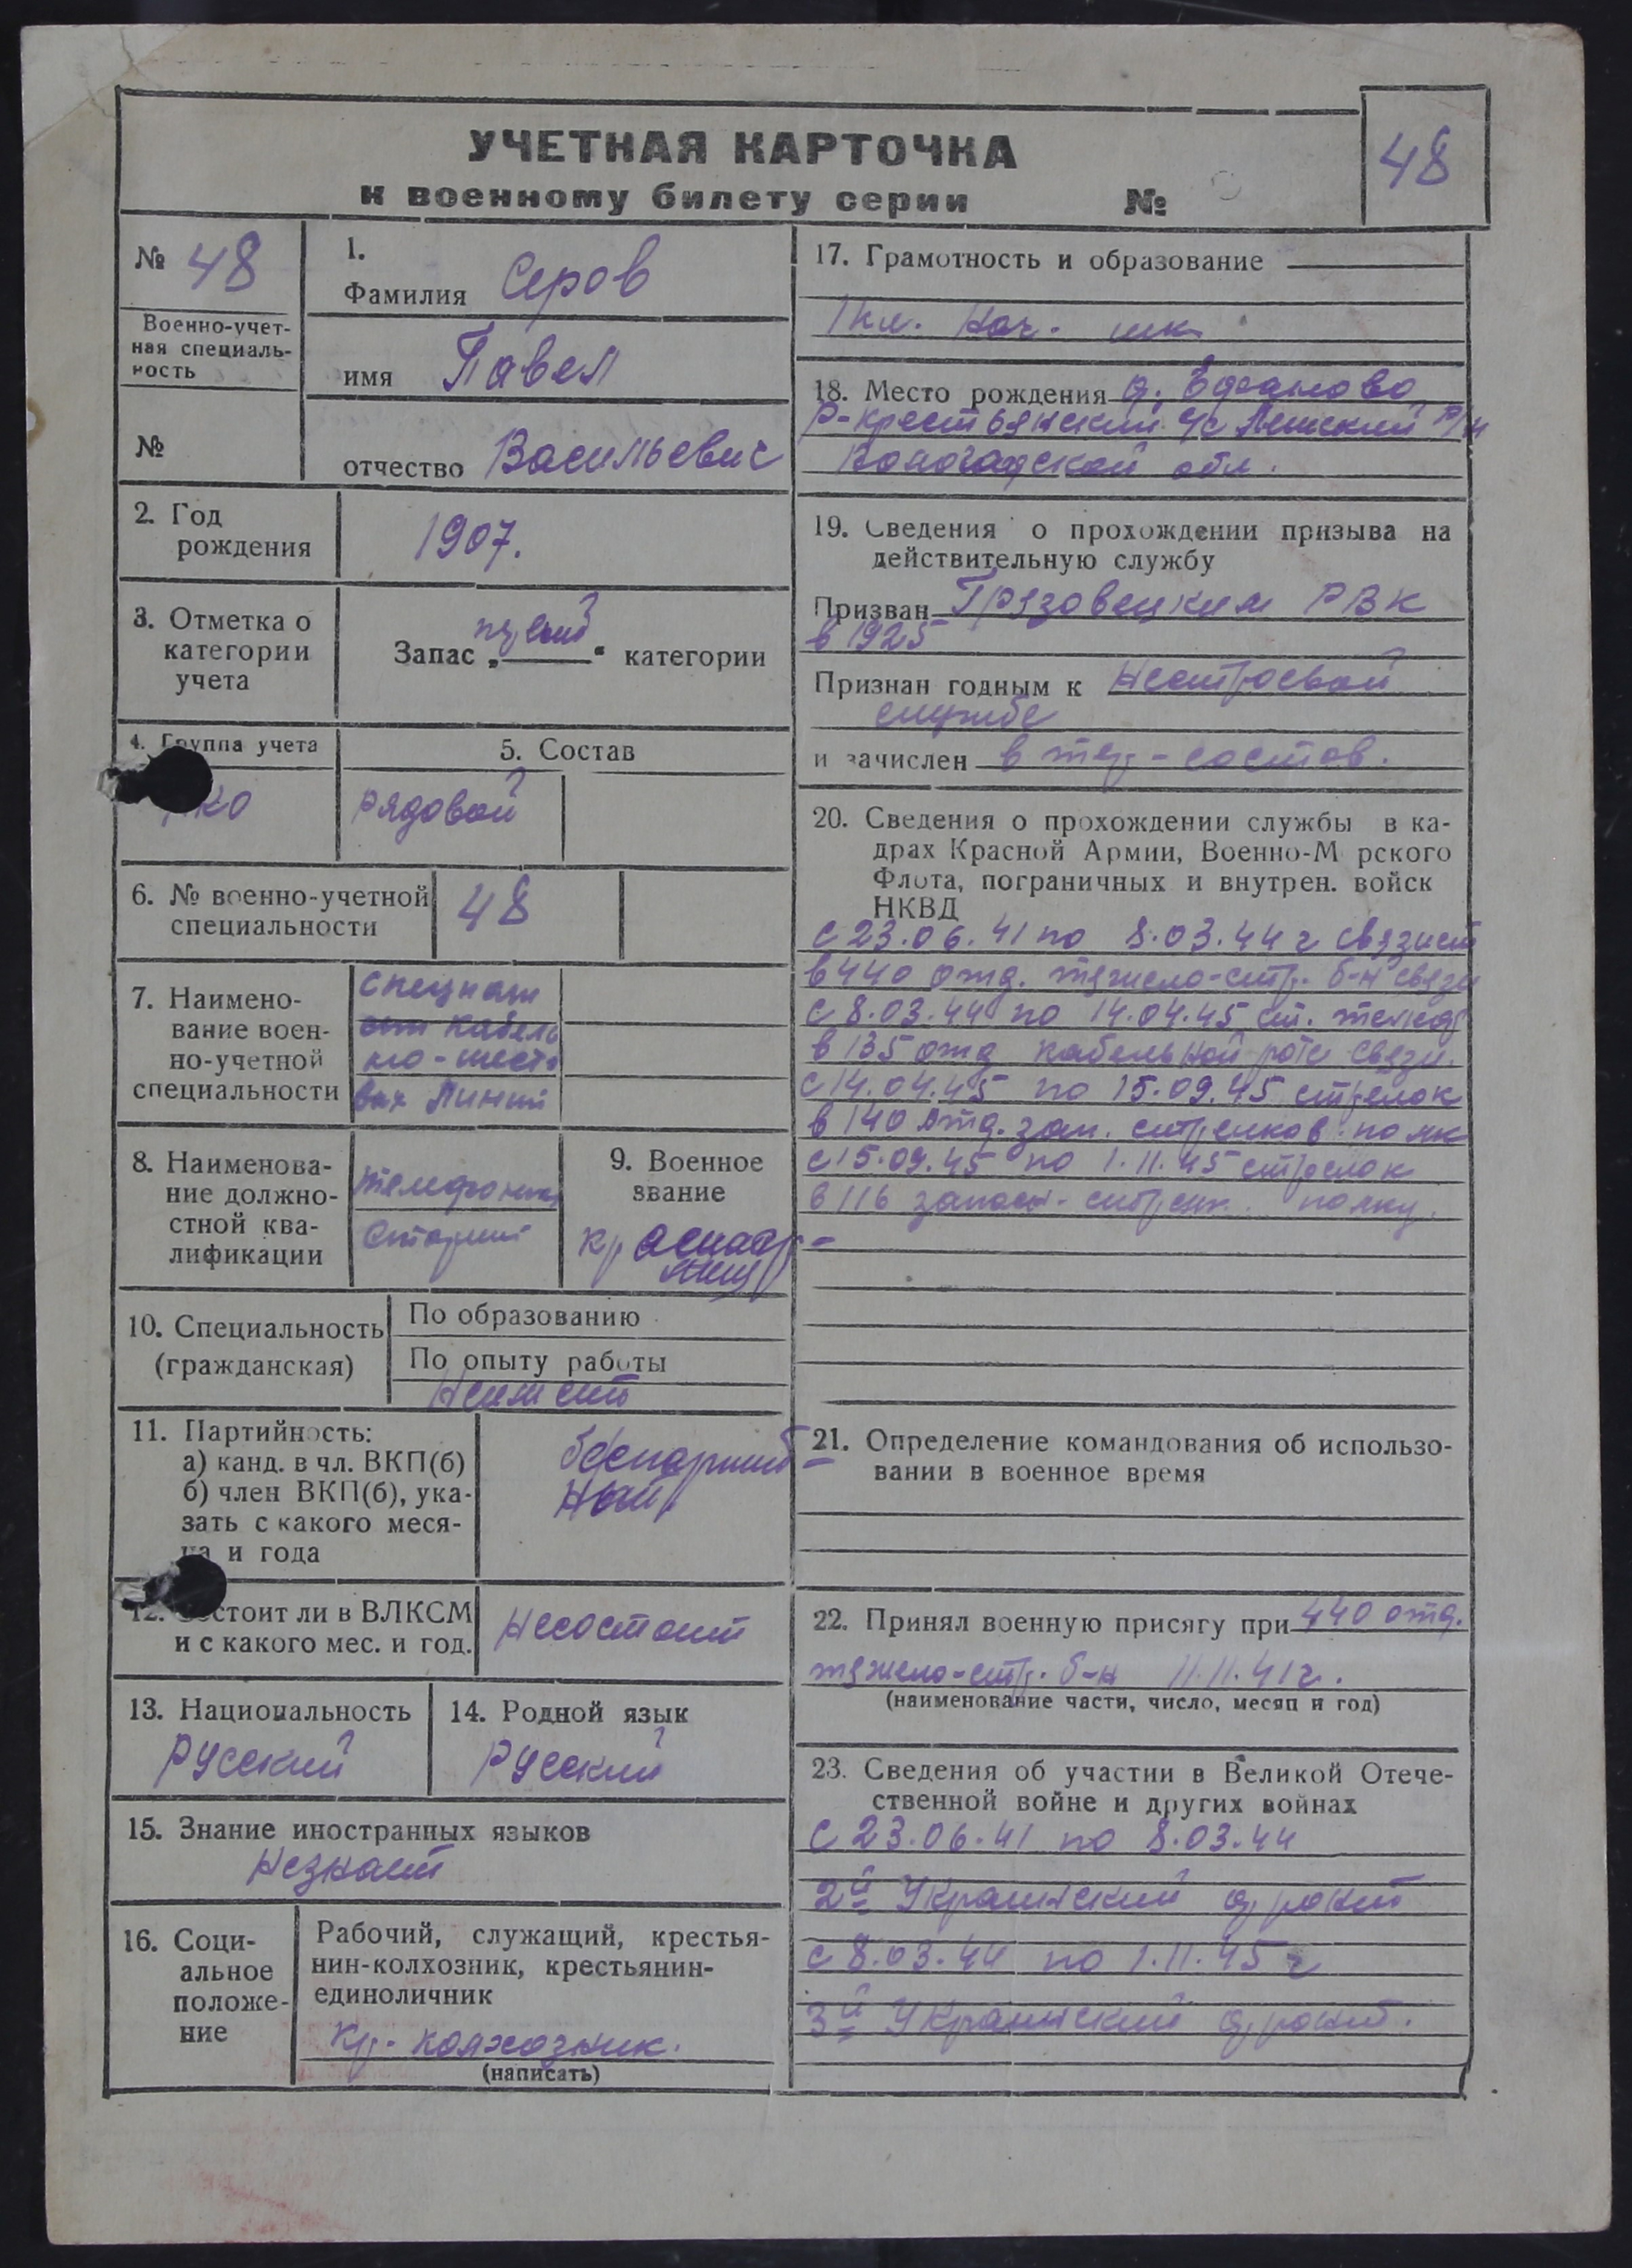 УЧЕТНАЯ КАРТОЧКА
к военному билету серии №
48
№ 48
Военно-учет-
ная специаль-
ность
№
1.
Фамилия Серов
имя Павел
отчество Васильевич
2. Год
рождения
1907.
3. Отметка о
категории
учета
Запас „ " категории
4. Группа учета
5. Состав
рядовой
6. № военно-учетной
специальности
48
7. Наимено-
вание воен-
но-учетной
специальности
специалист
кабель
но-шесто
вых Линий
8. Наименова-
ние должно-
стной ква-
лификации
телефонист
старший
9. Военное
звание
красноар-
меец
10. Специальность
(гражданская)
По образованию
По опыту работы
Неимеет
11. Партийность:
а) канд. в чл. ВКП(б)
б) член ВКП(б), ука-
зать с какого меся-
ца и года
беспартий
ный
12. Состоит ли в ВЛКСМ
и с какого мес. и год.
Несостоит
13. Национальность
Русский
14. Родной язык
Русский
15. Знание иностранных языков
Незнает
16. Соци-
альное
положе-
ние
Рабочий, служащий, крестья-
нин-колхозник, крестьянин-
единоличник
кр. колхозник.
(написать)
17. Грамотность и образование
1 кл. Нач. шк
18. Место рождения д.
Р-крестьянский с/с Лежский р/н
Вологодской обл.
19. Сведения о прохождении призыва на
действительную службу
Призван Грязовецким РВК
в 1925
Признан годным к Нестроевой
службе
и зачислен в тер-состав.
20. Сведения о прохождении службы в ка-
драх Красной Армии, Военно-М рского
Флота, пограничных и внутрен. войск
НКВД
с 23.06.41 по 8.03.44 г связист
в 440 отд. тяжело-стр. б-н связи
с 8.03.44 по 14.04.45 ст. телеф
в 135 отд кабельной роте связи.
с 14.04.45 по 15.09.45 стрелок
в 140 отд. зап. стрелков. полк
с 15.09.45 по 1.11.45 стрелок
в 116 запасн. стрелк. полку.
21. Определение командования об использо-
вании в военное время
22. Принял военную присягу при 440 отд.
тяжело-стр. б-н 11.11.41г.
(наименование части, число, месяц и год)
23. Сведения об участии в Великой Отече-
ственной войне и других войнах
с 23.06.41 по 8.03.44
2й Украинский фронт
с 8.03.44 по 1.11.45 г
3й Украинский фронт.